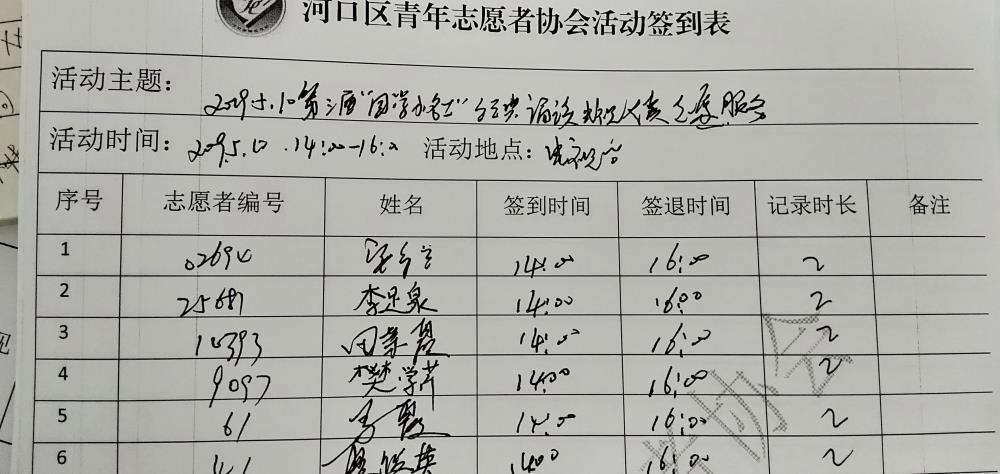 河口区青年志愿者协会活动签到表
活动主题: 2019.5.10第三届"国学小名士"经典诵读 志愿服务
活动时间: 2019.5.10 .14:00-16:00 活动地点:
序号 志愿者编号 姓名 签到时间 签退时间 记录时长 备注
1 02694 14:00 16:00 2
2 25681 李足泉 14:00 16:00 2
3 10393 14:00 16:00 2
4 9097 樊学芹 14:00 16:00 2
5 61 马霞 14:00 16:00 2
6 41 14:00 16:00 2
协会